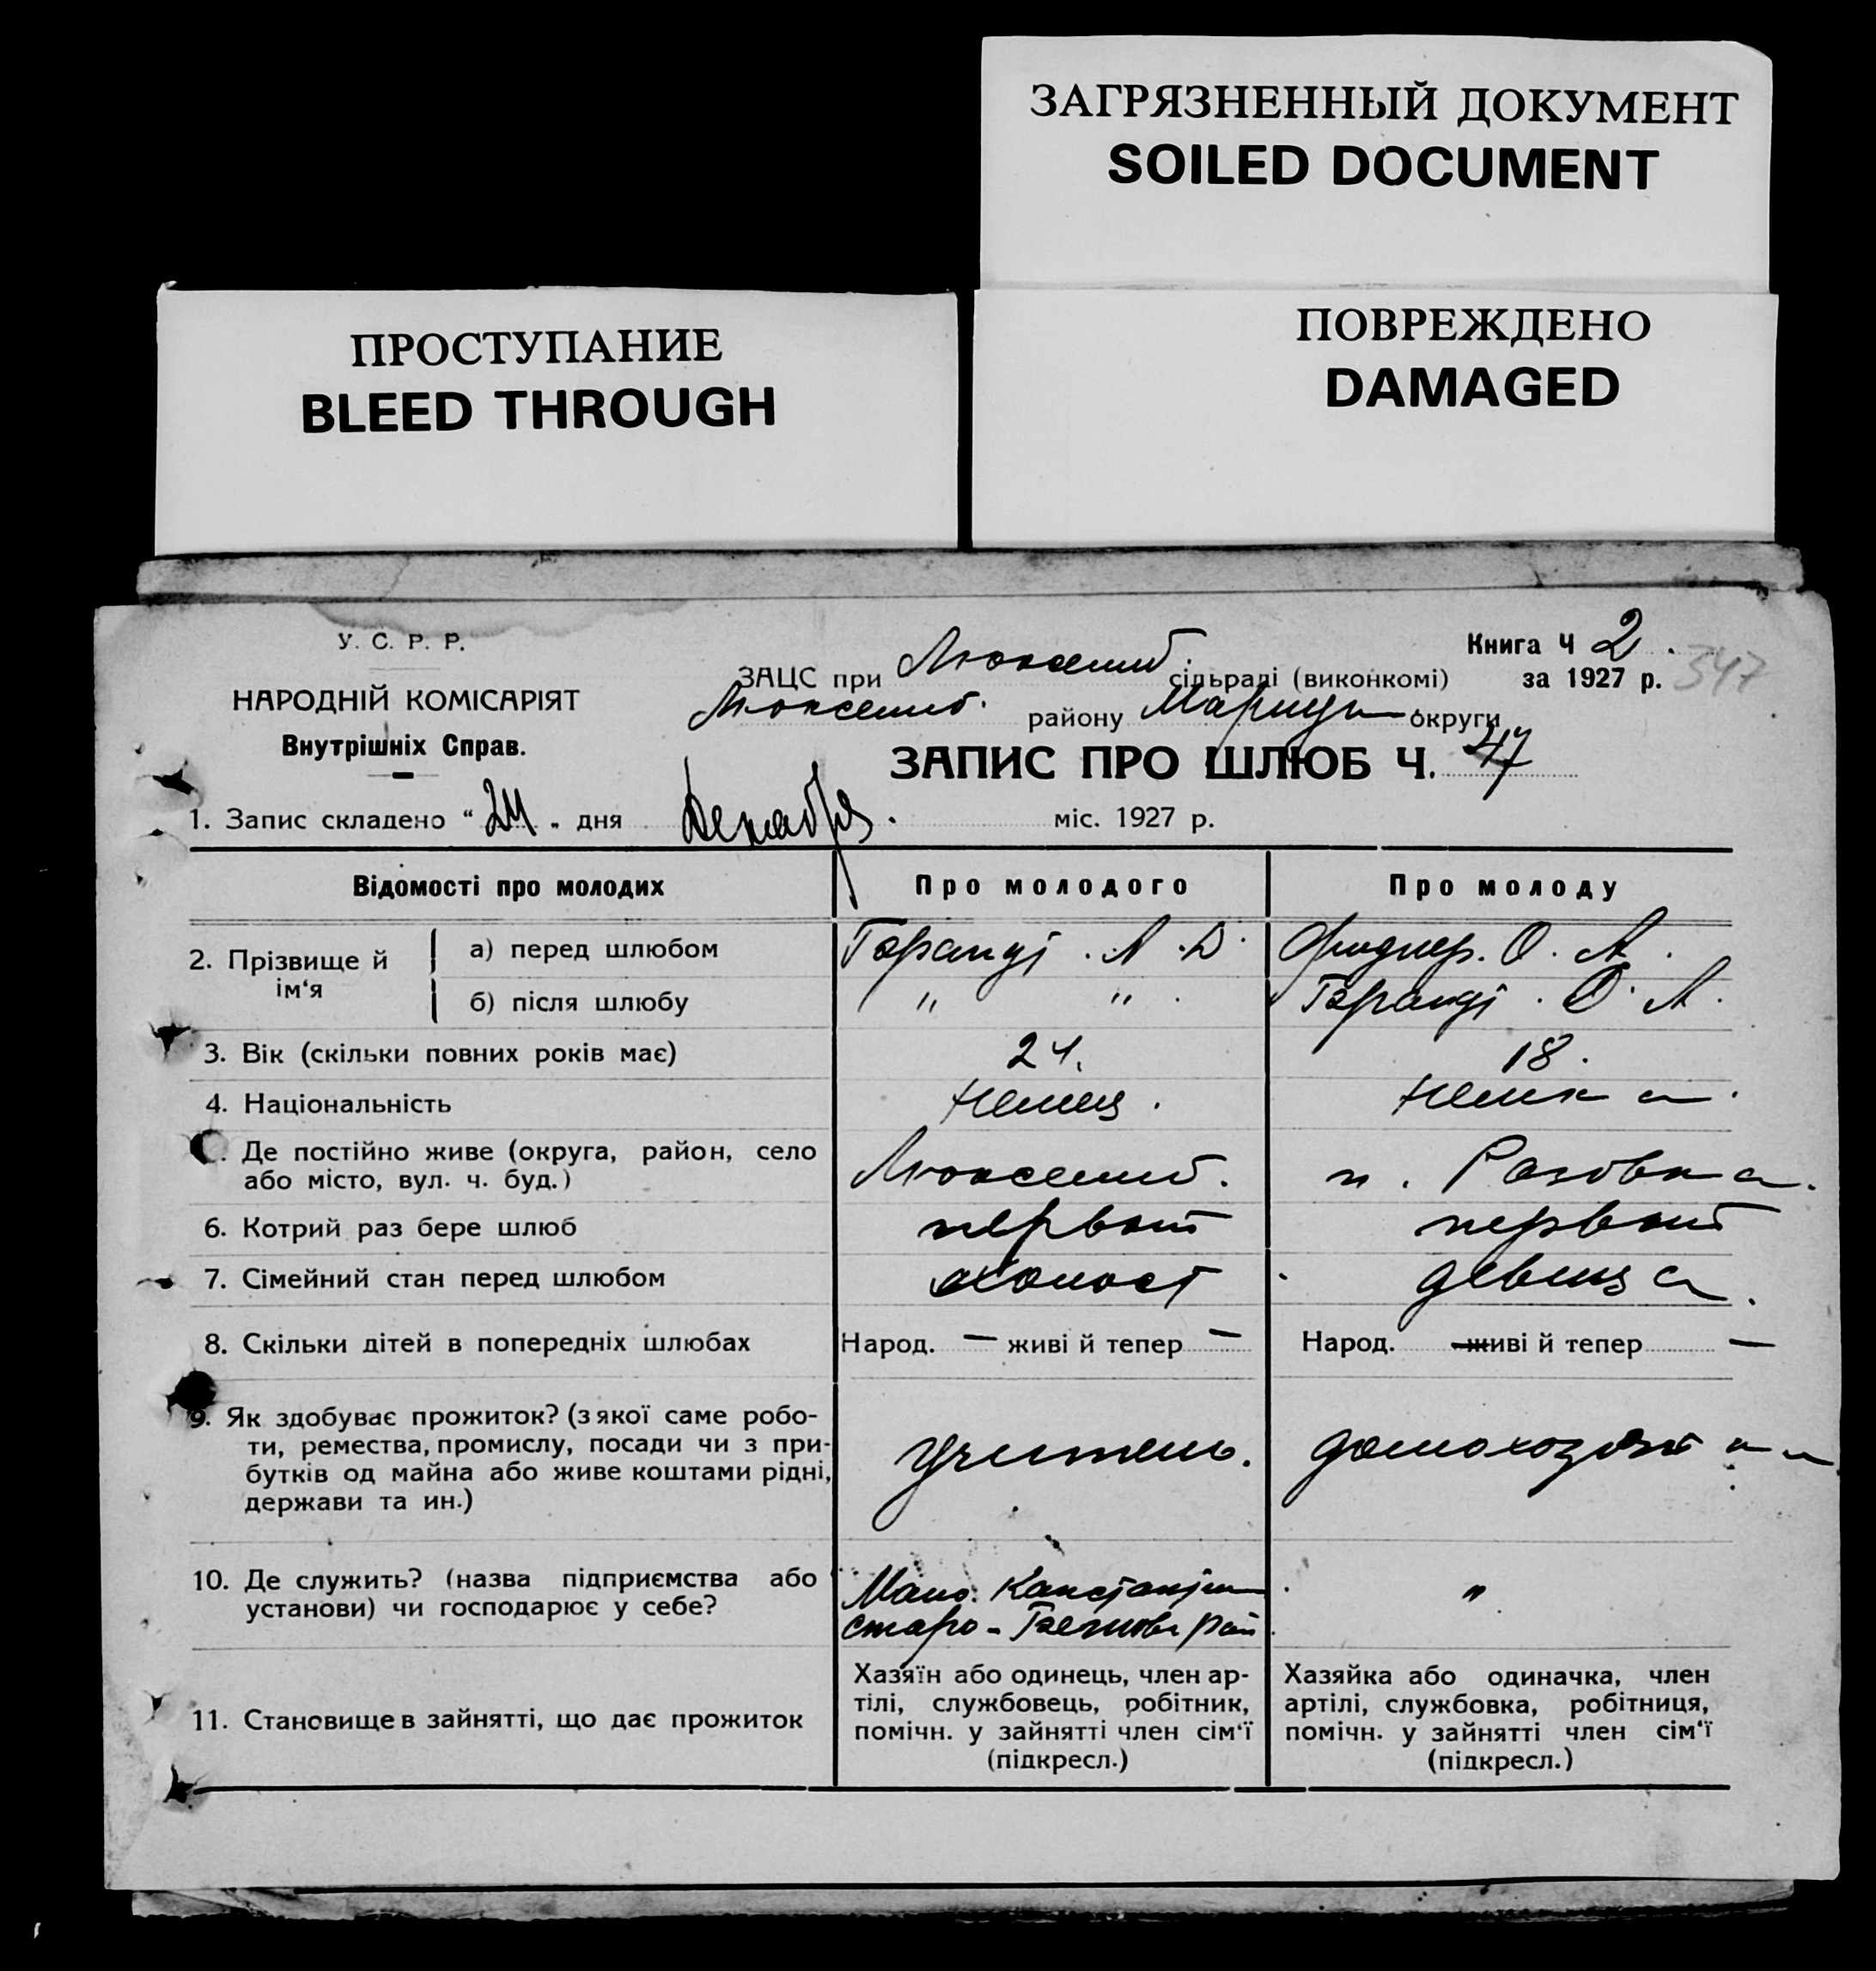 ЗАГРЯЗНЕННЫЙ ДОКУМЕНТ
SOILED DOCUMENT
ПРОСТУПАНИЕ
BLEED THROUGH
ПОВРЕЖДЕНО
DAMAGED
У. С. Р. Р.
НАРОДНІЙ КОМІСАРІЯТ
Внутрішніх Справ.
Книга Ч 2.
ЗАЦС при Люксемб. сільраді (виконкомі) за 1927 р. 347
Люксемб. району Мариуп округи
ЗАПИС ПРО ШЛЮБ Ч. 47
1. Запис складено "24" дня Декабря. міс. 1927 р.
Відомості про молодих
Про молодого
Про молоду
2. Прізвище й ім'я
а) перед шлюбом
А. О. А.
б) після шлюбу
" " О. А.
3. Вік (скільки повних років має)
24. 18.
4. Національність
Немец. Немка.
Де постійно живе (округа, район, село
або місто, вул. ч. буд.)
Люксемб. п. Розовка.
6. Котрий раз бере шлюб
первый первый
7. Сімейний стан перед шлюбом
холост девица.
8. Скільки дітей в попередніх шлюбах
Народ. — живі й тепер — Народ. — живі й тепер —
9. Як здобуває прожиток? (з якої саме робо-
ти, ремества, промислу, посади чи з при-
бутків од майна або живе коштами рідні,
держави та ин.)
учитель. домохозяйка
10. Де служить? (назва підприємства або
установи) чи господарює у себе?
Мало. Констант
старо- рай. "
11. Становище в зайнятті, що дає прожиток
Хазяїн або одинець, член ар-
тілі, службовець, робітник,
помічн. у зайнятті член сім'ї
(підкресл.)
Хазяйка або одиначка, член
артілі, службовка, робітниця,
помічн. у зайнятті член сім'ї
(підкресл.)